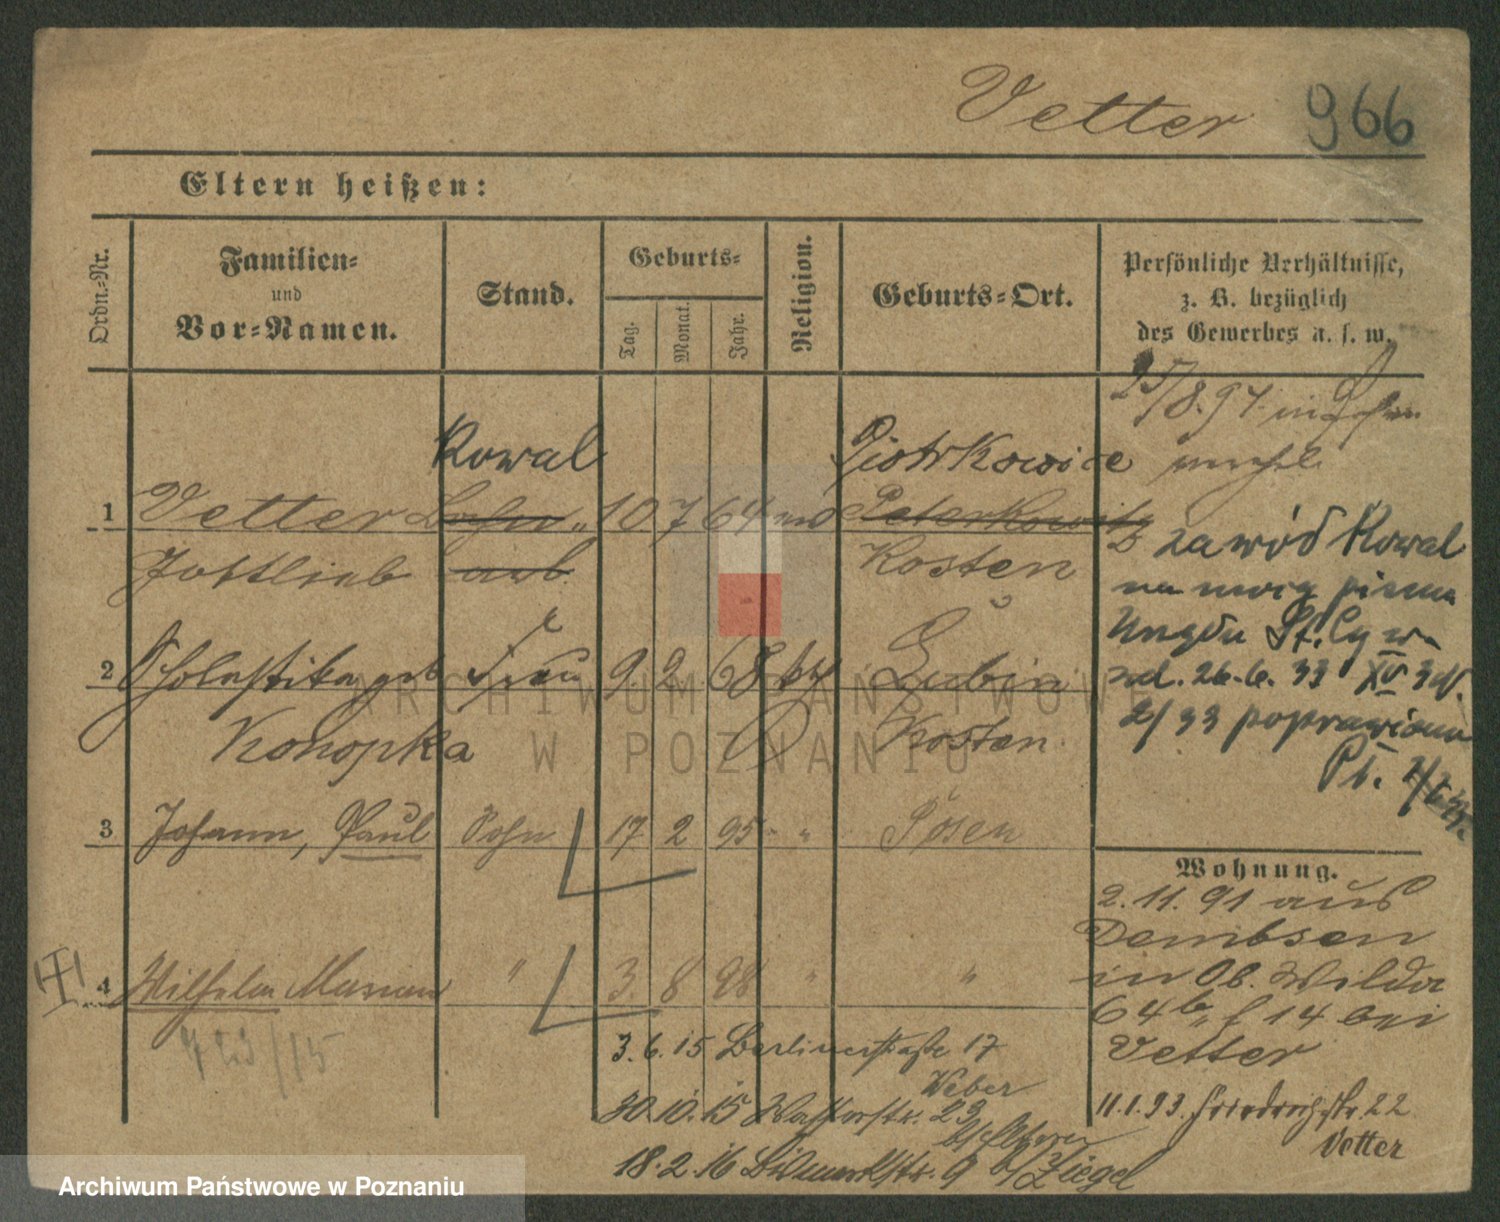 Vetter 966
Eltern heißen:
Ordn.-Nr.
Familien-
und
Vor-Namen.
Stand.
Geburts-
Tag.
Monat.
Jahr.
Religion.
Geburts-Ort.
Persönliche Verhältnisse,
z. B. bezüglich
des Gewerbes u. s. w.
25/8.97 in Posen
Kowal Piotrkowice
1 Vetter 10 7 64 Peterkowitz
Gottlieb Kosten
zawód Kowal
na mocy pisma
Urzędu St. Cyw.
2/33 poprawiono
2 Scholastika geb Frau 9. 2 68 Lubin
Konopka Kosten
3 Johann, Paul Sohn 17 2 95 " Posen
4 Wilhelm Marian " 3. 8 98 " "
723/15
Wohnung.
2.11.91 aus
Dembsen
in Ob. Wilda
64b, f 14 bei
Vetter
11.1.93. Friedrichstr. 22
Vetter
3.6.15 Berlinerstraße 17
Weber
30.10.15 23
18.2.16 Bismarckstr. 9 b/Ziegel
ARCHIWUM PAŃSTWOWE
W POZNANIU
Archiwum Państwowe w Poznaniu